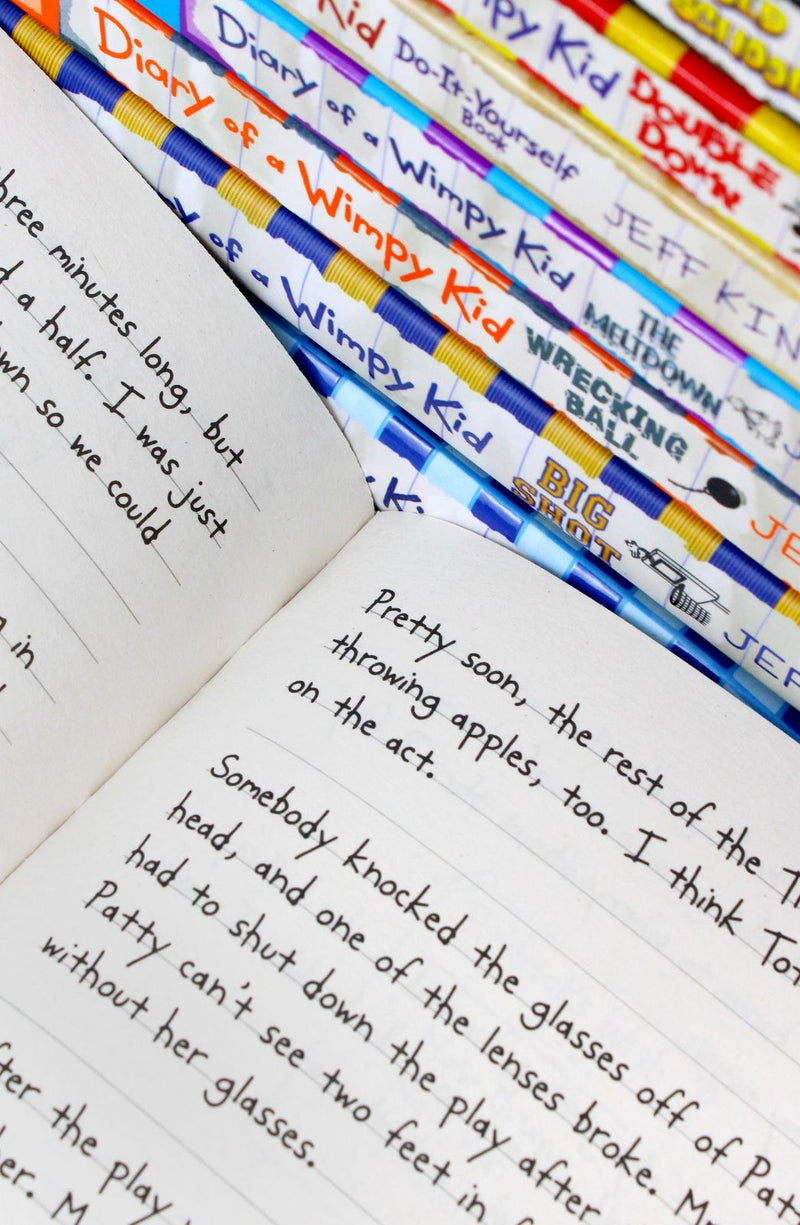 OLD
SCHOOL
Wimpy Kid
DOUBLE
DOWN
Kid
Do-It-Yourself
Book
JEFF KIN
Diary of a Wimpy Kid
THE
MELTDOWN
Diary of a Wimpy Kid
WRECKING
BALL
JE
of a Wimpy Kid
BIG
SHOT
JEF
three minutes long, but
a half. I was just
so we could
in
Pretty soon, the rest of the
throwing apples, too. I think Tot
on the act.
Somebody knocked the glasses off of Pat
head, and one of the lenses broke.
had to shut down the play after
Patty can't see two feet in
without her glasses.
the play